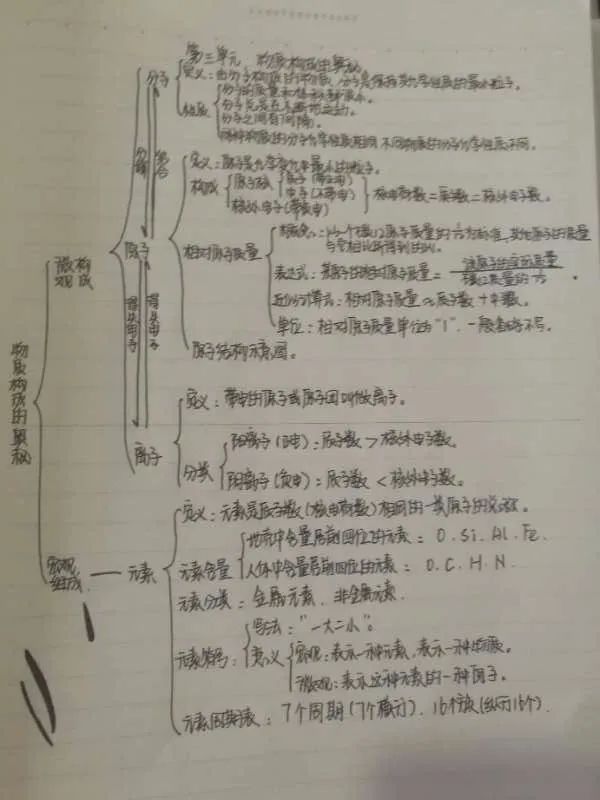 第三单元、物质构成的奥秘
分子
定义：由分子构成的物质，分子是保持其化学性质的最小粒子。
性质
分子的质量和体积都很小。
分子总是在不断地运动。
分子之间有间隔。
同种物质的分子化学性质相同 不同物质的分子化学性质不同。
分解
结合
原子
定义：原子是化学变化中最小的粒子。
构成
原子核
质子（带正电）
中子（不带电）
核外电子（带负电）
核电荷数=质子数=核外电子数。
相对原子质量
以一个碳12原子质量的1/12为标准，其他原子的质量
与它相比所得到的比。
表达式：某原子的相对原子质量=
碳12质量的1/12
近似计算式：相对原子质量≈质子数+中子数。
单位：相对原子质量单位为"1"，一般省略不写。
原子结构示意图。
微观
构成
得失电子
得失电子
离子
定义：带电的原子或原子团叫做离子。
分类
阳离子（正电）：质子数>核外电子数。
阴离子（负电）：质子数<核外电子数。
物质构成的奥秘
宏观
组成
元素
定义：元素是质子数（核电荷数）相同的一类原子的总称。
元素含量
地壳中含量居前四位的元素：O. Si. Al. Fe.
人体中含量居前四位的元素：O. C. H. N.
元素分类：金属元素．非金属元素．
元素符号：
写法："一大二小"。
意义
宏观：表示一种元素，表示一种物质。
微观：表示这种元素的一种原子。
元素周期表：7个周期（7个横行）．16个族（纵行16个）．